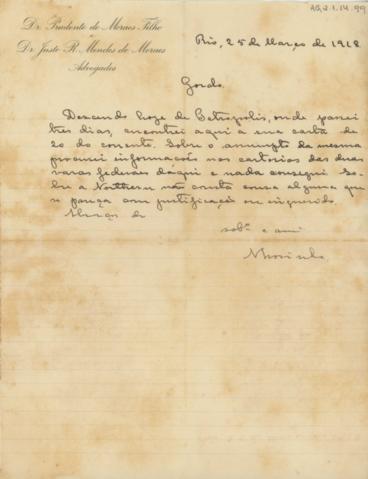 AG.2.1.14.99
Dr. Prudente de Moraes Filho
e
Dr. Justo R. Mendes de Moraes
Advogados
Rio, 25 de Março de 1918
Gordo
Descendo hoje de Petropolis, onde passei
tres dias, encontrei aqui a sua carta de
20 do corrente. Sobre o assumpto da mesma
procurei informações nos cartorios das duas
varas federaes daqui e nada consegui. So-
bre a Northern não consta cousa alguma que
se pareça com justificação ou inquerido.
Abraços do
sobº. e amº